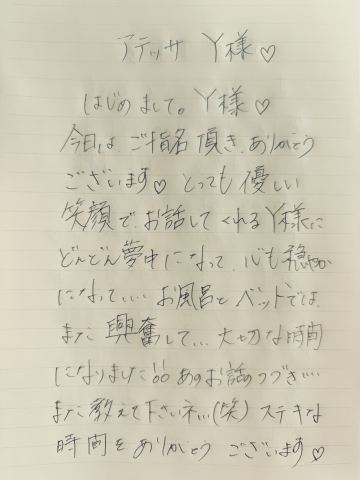 アテッサ Y様♡
はじめまして。Y様♡
今日は、ご指名頂き、ありがとう
ございます♡ とっても優しい
笑顔で、お話してくれるY様に
どんどん夢中になって、心も穏やか
になって、、、お風呂とベッドでは、
また興奮して… 大切な時間
になりました 。あのお話のつづき…
また教えて下さいネ…(笑) ステキな
時間をありがとうございます♡